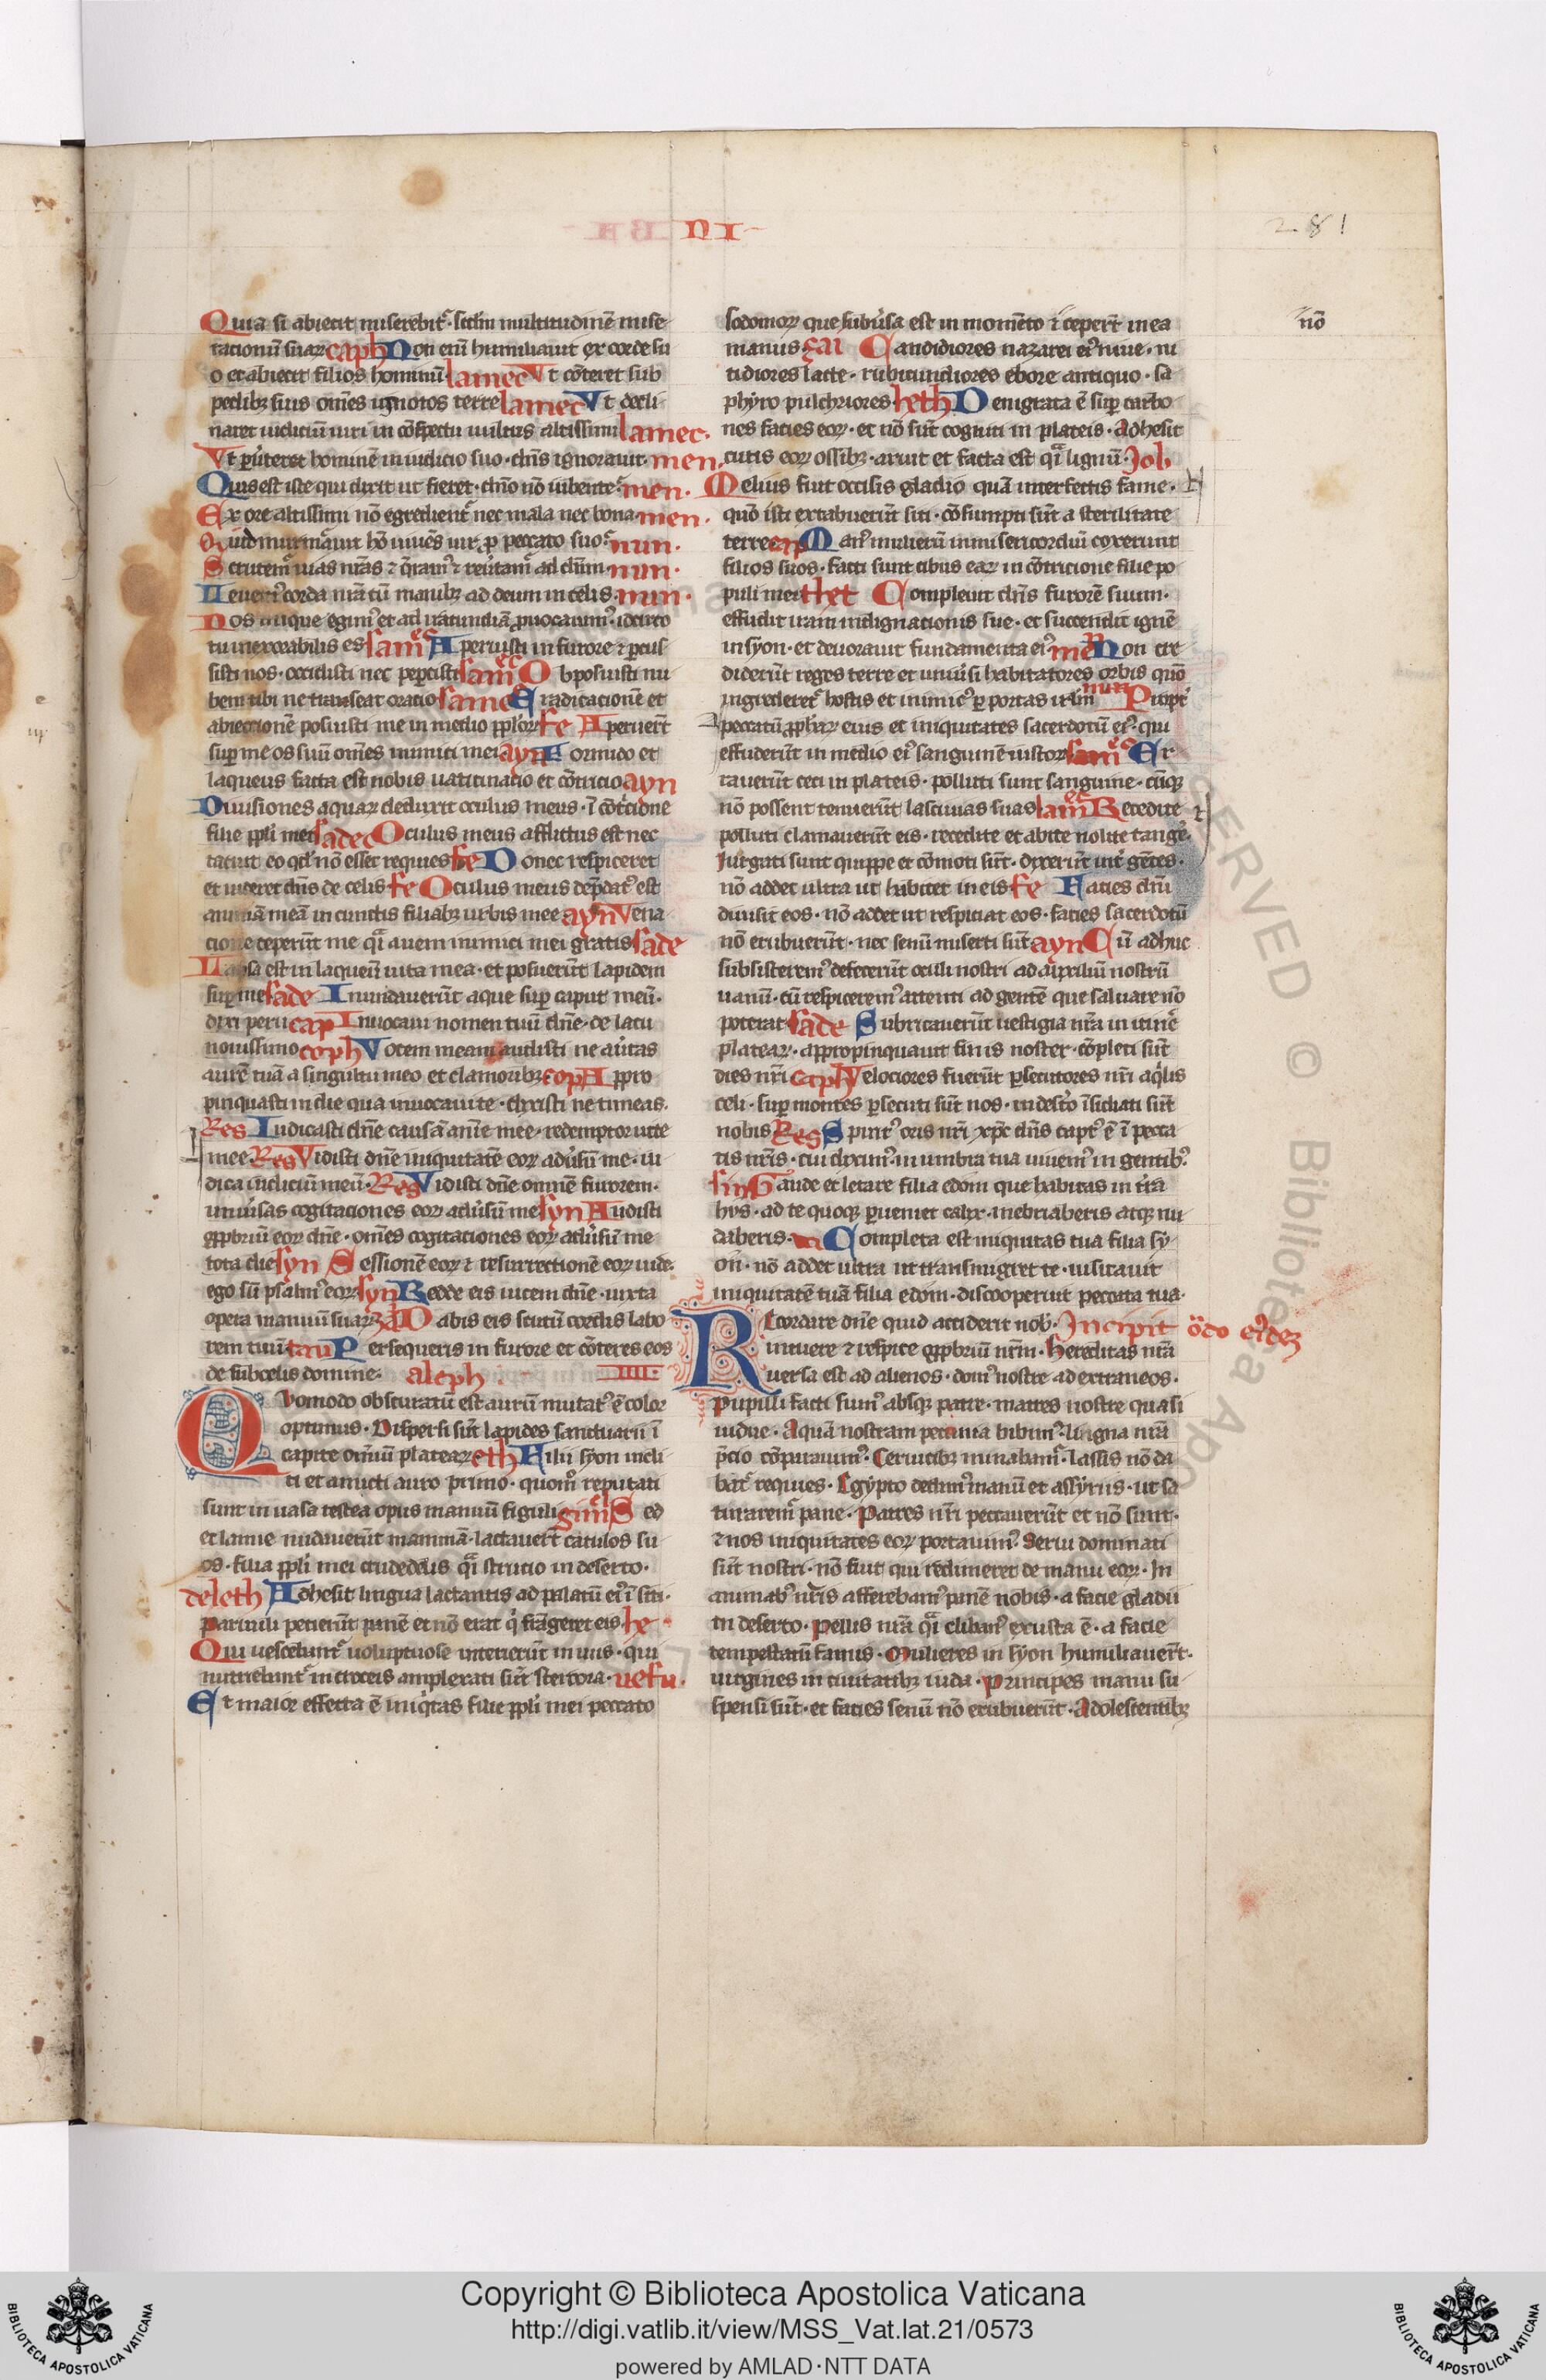 NI
281
Quia si abiecit miserebit᷑ · scdm̄ multitudinē mise
rationū suaꝝ caph Non eni᷑ humiliauit ex corde su
o et abiecit filios hominū · lamec Vt cōteret sub
pedibꝫ suis om̄es uinctos terre lamec Vt decli
naret iudiciū uiri in cōspectu uultus altissimi lamec ·
Vt ꝑu̓teret hominē in iudicio suo · dn̄s ignorauit · men ·
Quis est iste qui dixit ut fieret · dn̄o nō iubente · men ·
Ex ore altissimi nō egredient᷑ nec mala nec bona · men ·
Quid murm̄auit hō uiuēs uir ꝓ peccato suo · nun ·
Scrutem᷑ uias nr̄as ⁊ q̄ram᷒ ⁊ reu̓tam᷑ ad dn̄m · nun ·
Leuem᷒ corda nr̄a cū manibꝫ ad deum in celis · nun ·
Nos inique egim᷒ et ad iracundiā ꝓuocauim᷒ · idcirco
tu inexorabilis es samec Aperuisti in furore ⁊ ꝑcus
sisti nos · occidisti nec peꝑcisti samec Obposuisti nu
bem tibi ne transeat oratio samec Eradicationē et
abiectionē posuisti me in medio ppl̓oꝝ fe Aperuer̄t
suꝑ me os suū om̄es inimici mei ayn Formido et
laqueus facta est nobis uaticinatio et cōtricio ayn
Diuisiones aquaꝝ deduxit oculus meus · ī cōtricione
filie ppl̓i mei sadec Oculus meus afflictus est nec
tacuit eo qd̓ nō esset requies fe Donec respiceret
et uideret dn̄s de celis fe Oculus meus dep̄dat᷒ est
animā meā in cunctis filiabꝫ urbis mee ayn Vena
cione ceperūt me q̄i auem inimici mei gratis sade
Lapsa est in laqueū uita mea · et posuerūt lapidem
suꝑ me sade Inundauerūt aque suꝑ caput meū ·
dixi perii cap Inuocaui nomen tuū dn̄e · de lacu
nouissimo coph Vocem meam audisti ne au̓tas
aurē tuā a singultu meo et clamoribꝫ cop Appro
pinquasti in die qua inuocaui te · dixisti ne timeas ·
Res Iudicasti dn̄e causā anīe mee · redemptor uite
mee Res Vidisti dn̄e iniquitatē eoꝝ adu̓sū me · iu
dica iudiciū meū · Res Vidisti dn̄e omnē furorem ·
uniu̓sas cogitaciones eoꝝ adu̓sū me syn Audisti
opprobriū eoꝝ dn̄e · om̄es cogitaciones eoꝝ adu̓sū me
tota die syn Sessionē eoꝝ ⁊ resurrectionē eoꝝ uide ·
ego sū psalm᷒ eoꝝ syn Redde eis uicem dn̄e · iuxta
opera manuū suaꝝ Dabis eis scutū cordis labo
rem tuū tau Persequeris in furore et cōteres eos
de sub celis domine · aleph · IIII ·
Quomodo obscuratū est aurū mutat᷒ ē color
optimus · Dispersi sūt lapides sanctuarii ī
capite om̄iū plateaꝝ eth Filii syon incli
ti et amicti auro primo · quom̊ reputati
sunt in uasa testea opus manuū figuli gimel Sed
et lamie nudauerūt mammā · lactauer̄t catulos su
os · filia ppl̓i mei crudedelis q̄i strucio in deserto ·
deleth Adhesit lingua lactantis ad palatū ei᷒ ī siti ·
Paruuli petierūt panē et nō erat q̓ frāgeret eis · he
Qui uescebant᷑ uoluptuose interierūt in uiis · qui
nutriebant᷑ in croceis amplexati sūt stercora · uefu ·
Et maior effecta ē iniq̓tas filie ppl̓i mei peccato
sodomoꝝ que subu̓sa est in momēto ⁊ ī ceper̄t in ea
manus zai Candidiores nazarei ei᷒ niue · ni
tidiores lacte · rubicundiores ebore antiquo · sa
phyro pulchriores heth Denigrata ē suꝑ carbo
nes facies eoꝝ · et nō sūt cogniti in plateis · Adhesit
cutis eoꝝ ossibꝫ · aruit et facta est q̄i lignū · Job
Melius fuit occisis gladio quā interfectis fame ·
quō isti extabuerūt siti · cōsumpti sūt a sterilitate
terre cap Man᷒ mulierū misericordiū coxerunt
filios suos · facti sunt cibus eaꝝ in cōtricione filie po
puli mei thet Compleuit dn̄s furorē suum ·
effudit iram indignationis sue · et succendit ignē
in syon · et deuorauit fundamenta ei᷒ · men Non cre
diderūt reges terre et uniu̓si habitatores orbis quō
ingrederet᷑ hostis et inimic᷒ ꝑ portas ierl̄m nun Propt̓
peccatū ꝓph̄aꝝ eius et iniquitates sacerdotū ei᷒ · qui
effuderūt in medio ei᷒ sanguinē iustoꝝ samec Er
rauerūt ceci in plateis · polluti sunt sanguine · cūqꝫ
nō possent tenuerūt lascinias suas samec Recedite
polluti clamauerūt eis · recedite et abite nolite tang̓e ·
Iurgati sunt quippe et cōmoti sūt · dixerūt int̓ gētes ·
nō addet ultra ut habitet in eis fe Facies dn̄i
diuisit eos · nō addet ut respiciat eos · facies sacerdotū
nō erubuerūt · nec senū miserti sūt ayn Cū adhuc
subsisterem᷒ defecerūt oculi nostri ad auxiliū nostrū
uanū · cū respicerem᷒ attenti ad gentē que saluare nō
poterat sade Lubricauerūt uestigia nr̄a in itin̓e
plateaꝝ · appropinquauit finis noster · cōpleti sūt
dies nr̄i caph Velociores fuerūt ꝑsecutores nr̄i aq̓lis
celi · suꝑ montes ꝑsecuti sūt nos · in des̓to īsidiati sūt
nobis Res Spirit᷒ oris nr̄i xp̄c dn̄s capt᷒ ē ī pecca
tis nr̄is · cui dixim᷒ · in umbra tua uiuem᷒ in gentibꝫ ·
sin Gaude et letare filia edom que habitas in t̓ra
hus · ad te quoqꝫ ꝑueniet calix · inebriaberis atqꝫ nu
daberis · Completa est iniquitas tua filia sy
on · nō addet ultra ut transmigret te · uisitauit
iniquitatē tuā filia edom · discooperuit peccata tua ·
Recordare dn̄e quid acciderit nob̓ · Incipit
intuere ⁊ respice opprobriū nr̄m · hereditas nr̄a
uersa est ad alienos · dom᷒ nostre ad extraneos ·
Pupilli facti sum᷒ absqꝫ patre · matres nostre quasi
uidue · Aquā nostram pecunia bibim᷒ · ligna nr̄a
p̄cio cōparauim᷒ · Ceruicibꝫ minabam᷑ · lassis nō da
bat᷑ requies · Egypto dedim᷒ manū et assyriis · ut sa
turarem᷑ pane · Patres nr̄i peccauerūt et nō sunt ·
⁊ nos iniquitates eoꝝ portauim᷒ · Serui dominati
sūt nostri · nō fuit qui redimeret de manu eoꝝ · In
animab᷒ nr̄is afferebam᷒ panē nobis · a facie gladii
in deserto · Pellis nr̄a q̄i cliban᷒ exusta ē · a facie
tempestatū famis · Mulieres in syon humiliauer̄t ·
uirgines in ciuitatibꝫ iuda · Principes manu su
spensi sūt · et facies senū nō erubuerūt · Adolescentibꝫ
nō
Copyright © Biblioteca Apostolica Vaticana
http://digi.vatlib.it/view/MSS_Vat.lat.21/0573
powered by AMLAD·NTT DATA
BIBLIOTECA APOSTOLICA VATICANA
BIBLIOTECA APOSTOLICA VATICANA